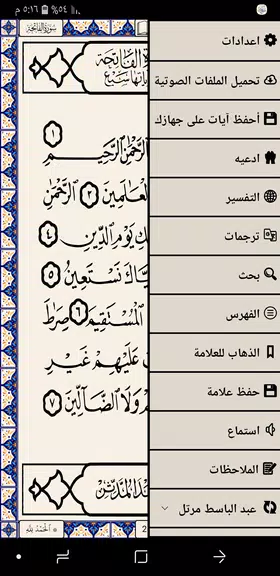 ٥:١٦ م
٥٤%
سورة الفاتحة
اعدادات
تحميل الملفات الصوتية
أحفظ آيات على جهازك
ادعيه
التفسير
ترجمات
بحث
الفهرس
الذهاب للعلامة
حفظ علامة
استماع
الملاحظات
عبد الباسط مرتل
ٱلرَّحْمَٰنِ ٱلرَّحِيمِ ١
ٱلْعَٰلَمِينَ ٢ ٱلرَّحْمَٰنِ
يَوْمِ ٱلدِّينِ ٤
نَسْتَعِينُ ٥
ٱلْمُسْتَقِيمَ ٦ صِرَٰطَ
عَلَيْهِمْ غَيْرِ
وَلَا ٱلضَّآلِّينَ ٧